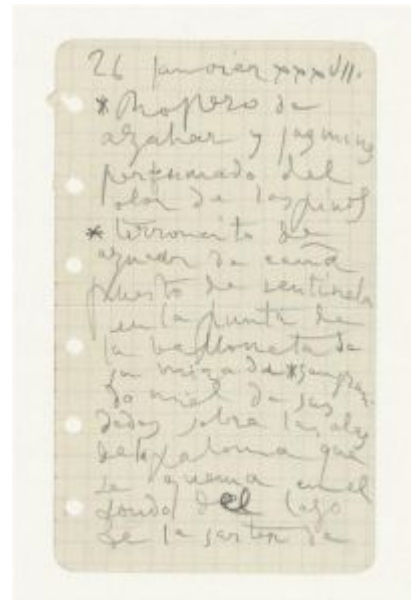 26 janvier XXXVII.
* Ropero de
azahar y jazmines
perfumado del
olor de los pinos
* terroncito de
azucar de caña
puesto de centinela
en la punta de
la balloneta de
su
do miel de sus
dedos sobre las alas
de la paloma que
se quema en el
fondo del lago
de la sarten de